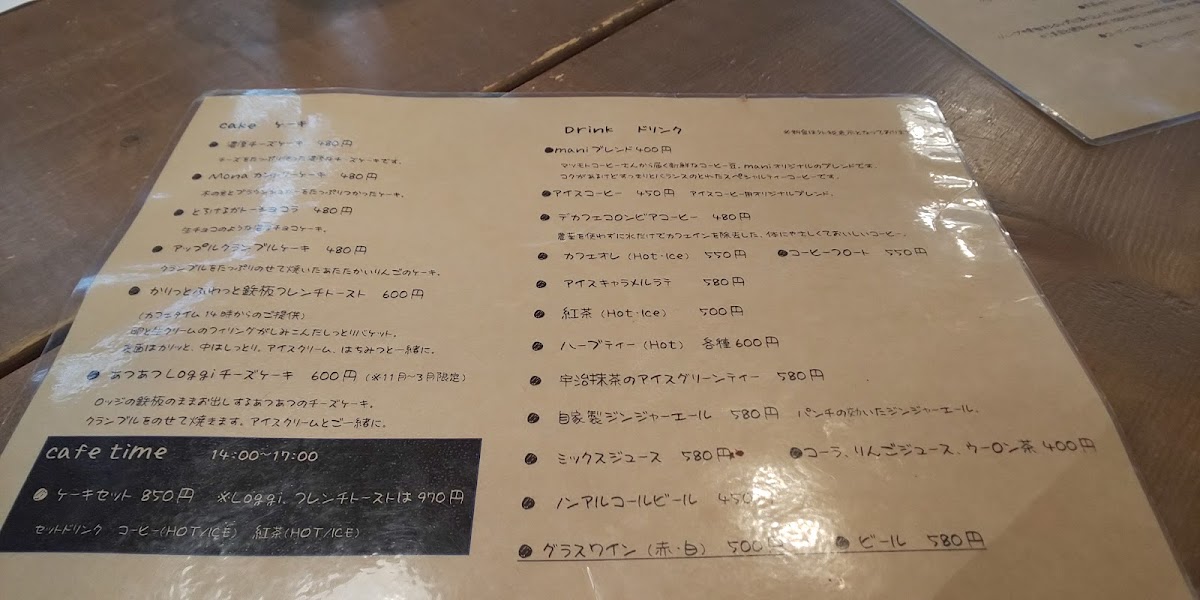 cake ケーキ
● 濃厚チーズケーキ 480円
チーズをたっぷり使った濃厚なチーズケーキです。
● Mona ケーキ 480円
木の実とブラウンシュガーをたっぷりつかったケーキ。
● とろけるガトーショコラ 480円
生チョコのような チョコケーキ。
● アップルクランブルケーキ 480円
クランブルをたっぷりのせて焼いたあたたかいりんごのケーキ。
● かりっとふわっと鉄板フレンチトースト 600円
(カフェタイム14時からのご提供)
卵と生クリームのフィリングがしみこんだしっとりバゲット。
表面はカリッと、中はしっとり。アイスクリーム、はちみつと一緒に。
● あつあつLoggiチーズケーキ 600円 (※11月~3月限定)
ロッジの鉄板のままお出しするあつあつのチーズケーキ。
クランブルをのせて焼きます。アイスクリームとご一緒に。
cafe time 14:00~17:00
● ケーキセット 850円 ※Loggi、フレンチトーストは970円
セットドリンク コーヒー(HOT/ICE) 紅茶(HOT/ICE)
Drink ドリンク
● maniブレンド 400円
マツモトコーヒーさんから届く新鮮なコーヒー豆。maniオリジナルのブレンドです。
コクがあるけどすっきりとバランスのとれたスペシャルティーコーヒーです。
● アイスコーヒー 450円 アイスコーヒー用オリジナルブレンド。
● デカフェコロンビアコーヒー 480円
農薬を使わずに水だけでカフェインを除去した、体にやさしくておいしいコーヒー。
● カフェオレ (Hot・Ice) 550円 ● コーヒーフロート 550円
● アイスキャラメルラテ 580円
● 紅茶 (Hot・Ice) 500円
● ハーブティー (Hot) 各種600円
● 宇治抹茶のアイスグリーンティー 580円
● 自家製ジンジャーエール 580円 パンチの効いたジンジャーエール。
● ミックスジュース 580円 ● コーラ、りんごジュース、ウーロン茶 400円
● ノンアルコールビール 450円
● グラスワイン (赤・白) 500円 ● ビール 580円